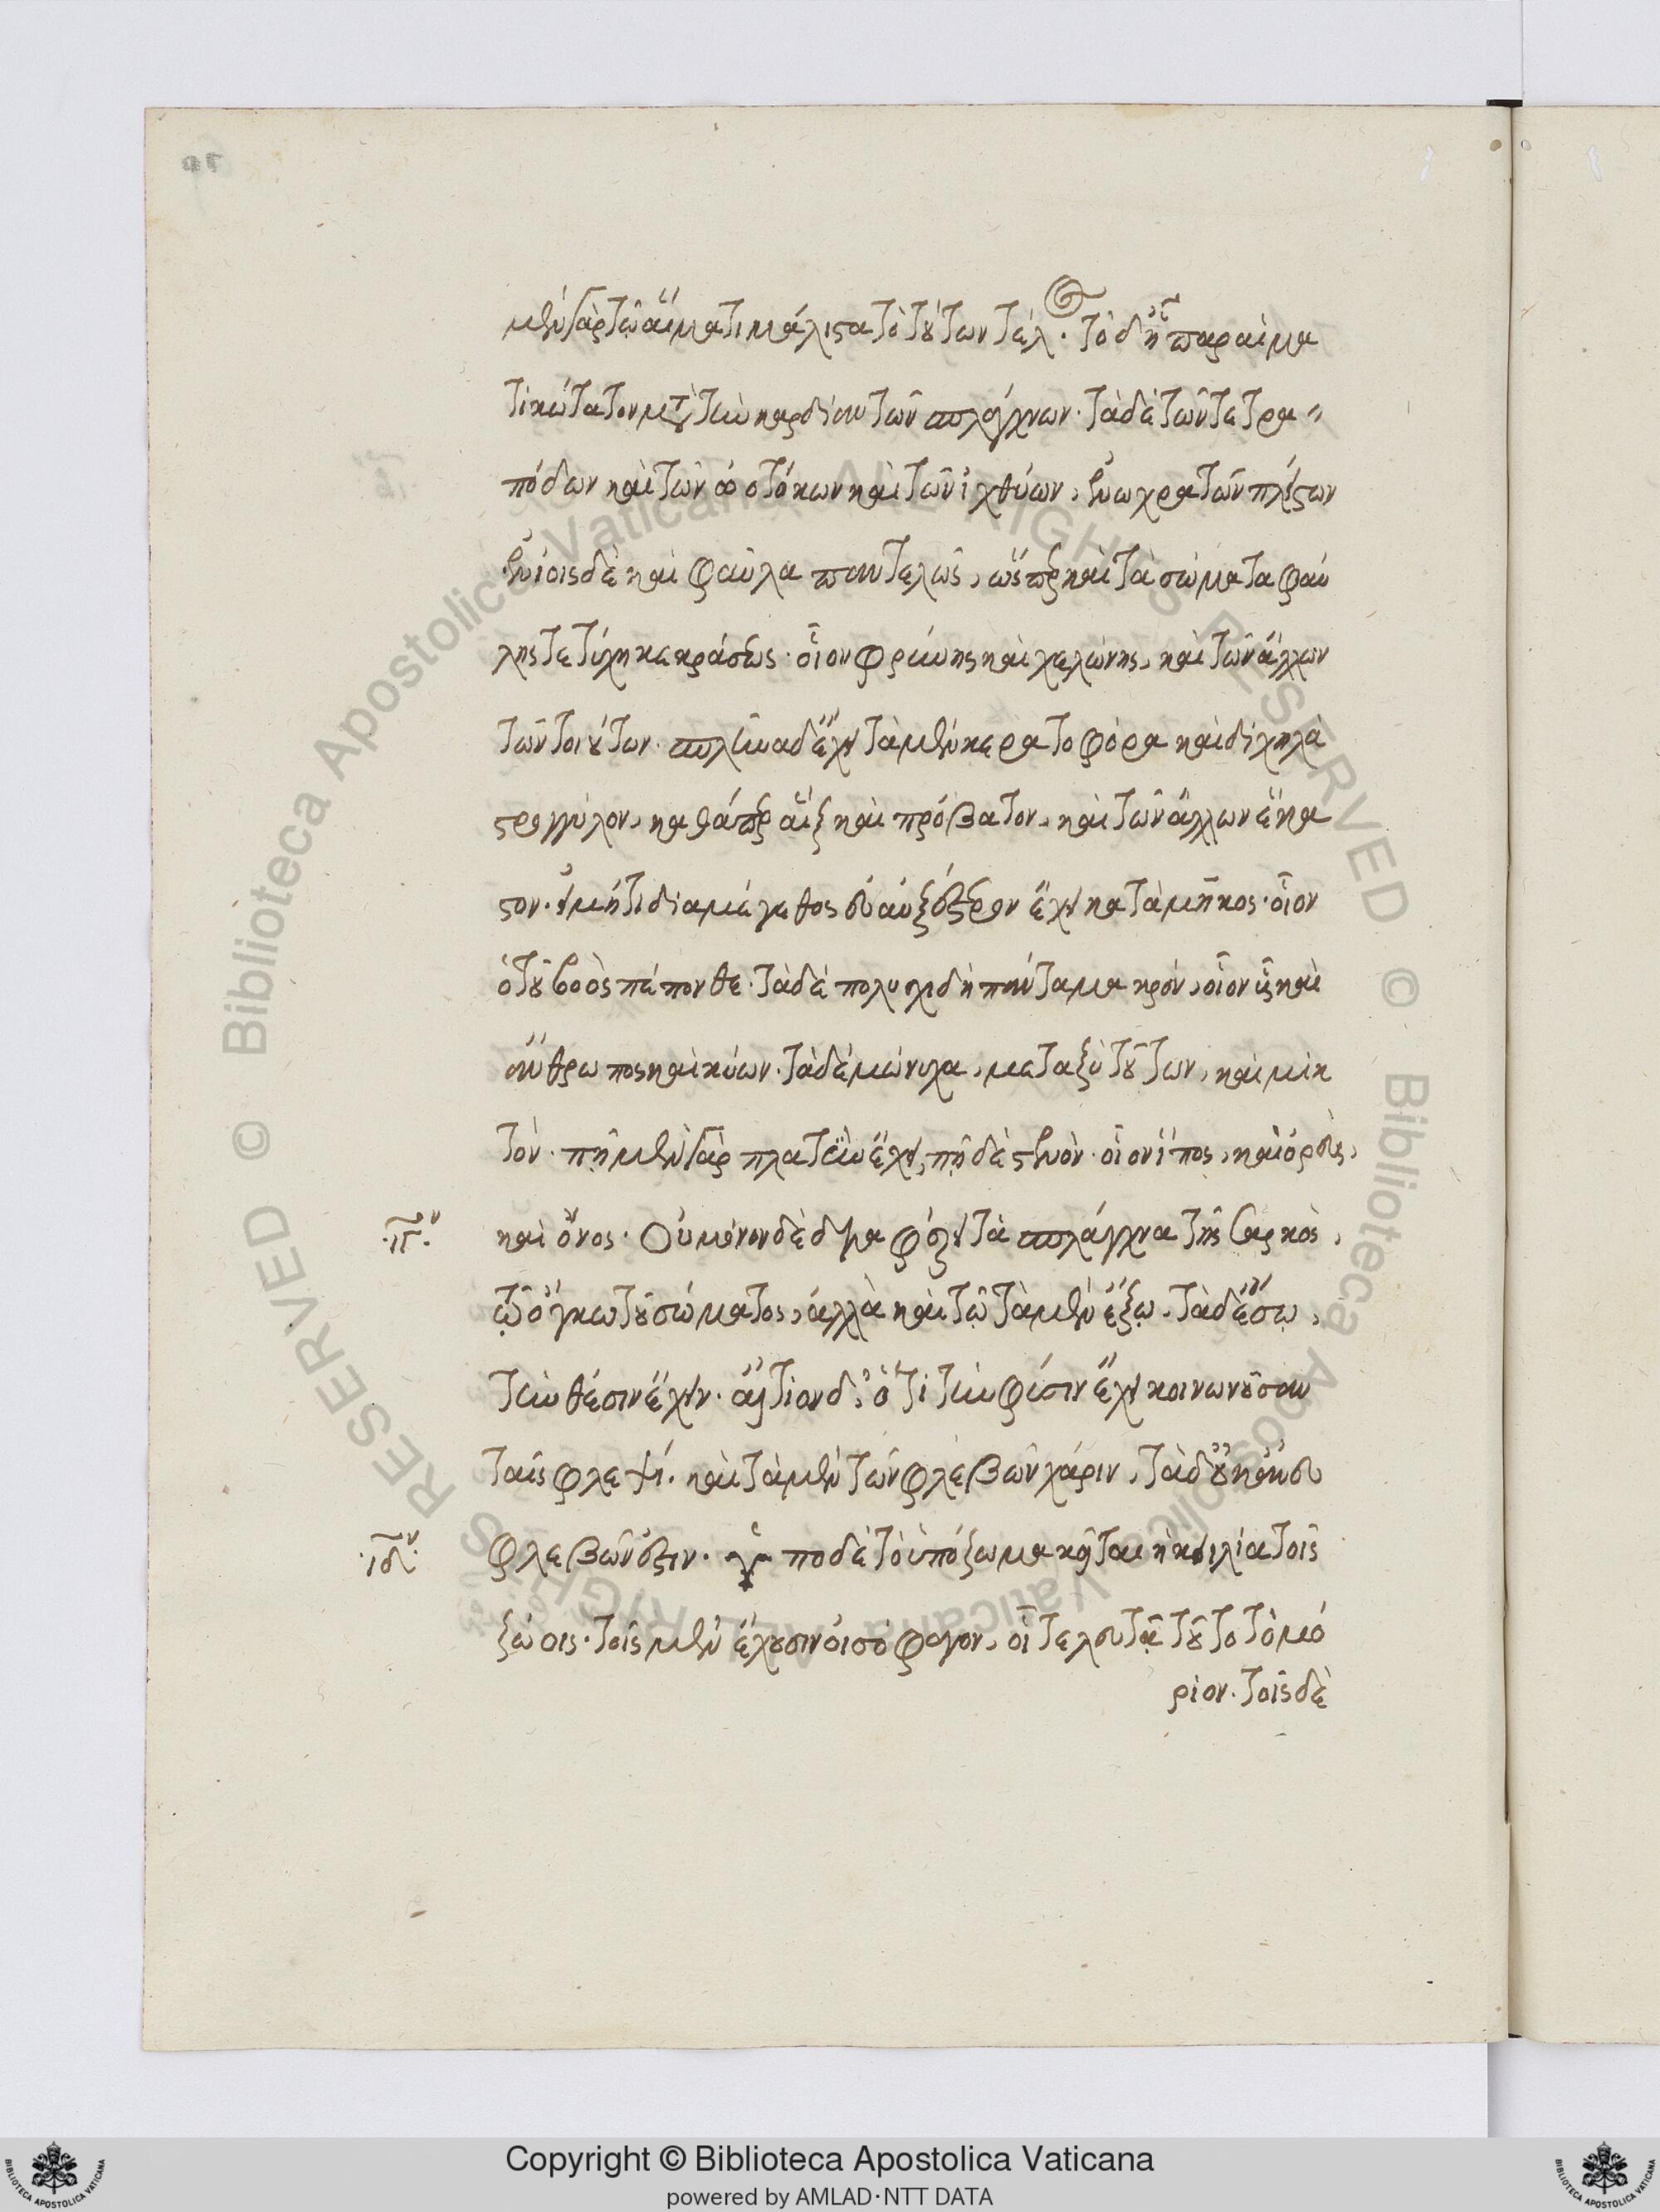 μὲν γὰρ τῷ αἵματι μάλιστα τὸ τούτων τέλος. τὸ δ' ἧπαρ αἱμα
τικώτατον μετὰ τὴν καρδίαν τῶν σπλάγχνων. τὰ δὲ τῶν τετρα
πόδων καὶ τῶν ᾠοτόκων καὶ τῶν ἰχθύων, ἔνωχρα τῶν πλείστων
ἐνίοις δὲ καὶ φαῦλα παντελῶς, ὥσπερ καὶ τὰ σώματα φαύ
λης τετύχηκε κράσεως. οἷον φρύνης καὶ χελώνης, καὶ τῶν ἄλλων
τῶν τοιούτων. σπλῆνα δ' ἔχει τὰ μὲν κερατοφόρα καὶ δίχηλα
στρογγύλον, καθάπερ αἲξ καὶ πρόβατον, καὶ τῶν ἄλλων ἕκα
στον. εἰ μή τι διὰ μέγεθος εὐαυξέστερον ἔχει κατὰ μῆκος. οἷον
ὁ τοῦ βοὸς πέπονθε. τὰ δὲ πολυσχιδῆ πάντα μακρόν, οἷον ὗς καὶ
ἄνθρωπος καὶ κύων. τὰ δὲ μώνυχα, μεταξὺ τούτων, καὶ μικ
τόν. πῇ μὲν γὰρ πλατὺν ἔχει, πῇ δὲ στενόν. οἷον ἵππος, καὶ ὀρεύς,
.ιγ'. καὶ ὄνος. Οὐ μόνον δὲ διαφέρει τὰ σπλάγχνα τῆς σαρκὸς,
τῷ ὄγκῳ τοῦ σώματος, ἀλλὰ καὶ τῷ τὰ μὲν ἔξω, τὰ δ' ἔσω,
τὴν θέσιν ἔχειν. αἴτιον δ', ὅτι τὴν φύσιν ἔχει κοινωνοῦσαν
ταῖς φλεψί. καὶ τὰ μὲν τῶν φλεβῶν χάριν, τὰ δ' οὐκ ἄνευ
.ιδ'. φλεβῶν ἐστιν. ὑπὸ δὲ τὸ ὑπόζωμα κεῖται ἡ κοιλία τοῖς
ζῴοις. τοῖς μὲν ἔχουσιν οἰσόφαγον, οἷ τελευτᾷ τοῦτο τὸ μό
ριον. τοῖς δὲ
Copyright © Biblioteca Apostolica Vaticana
powered by AMLAD·NTT DATA